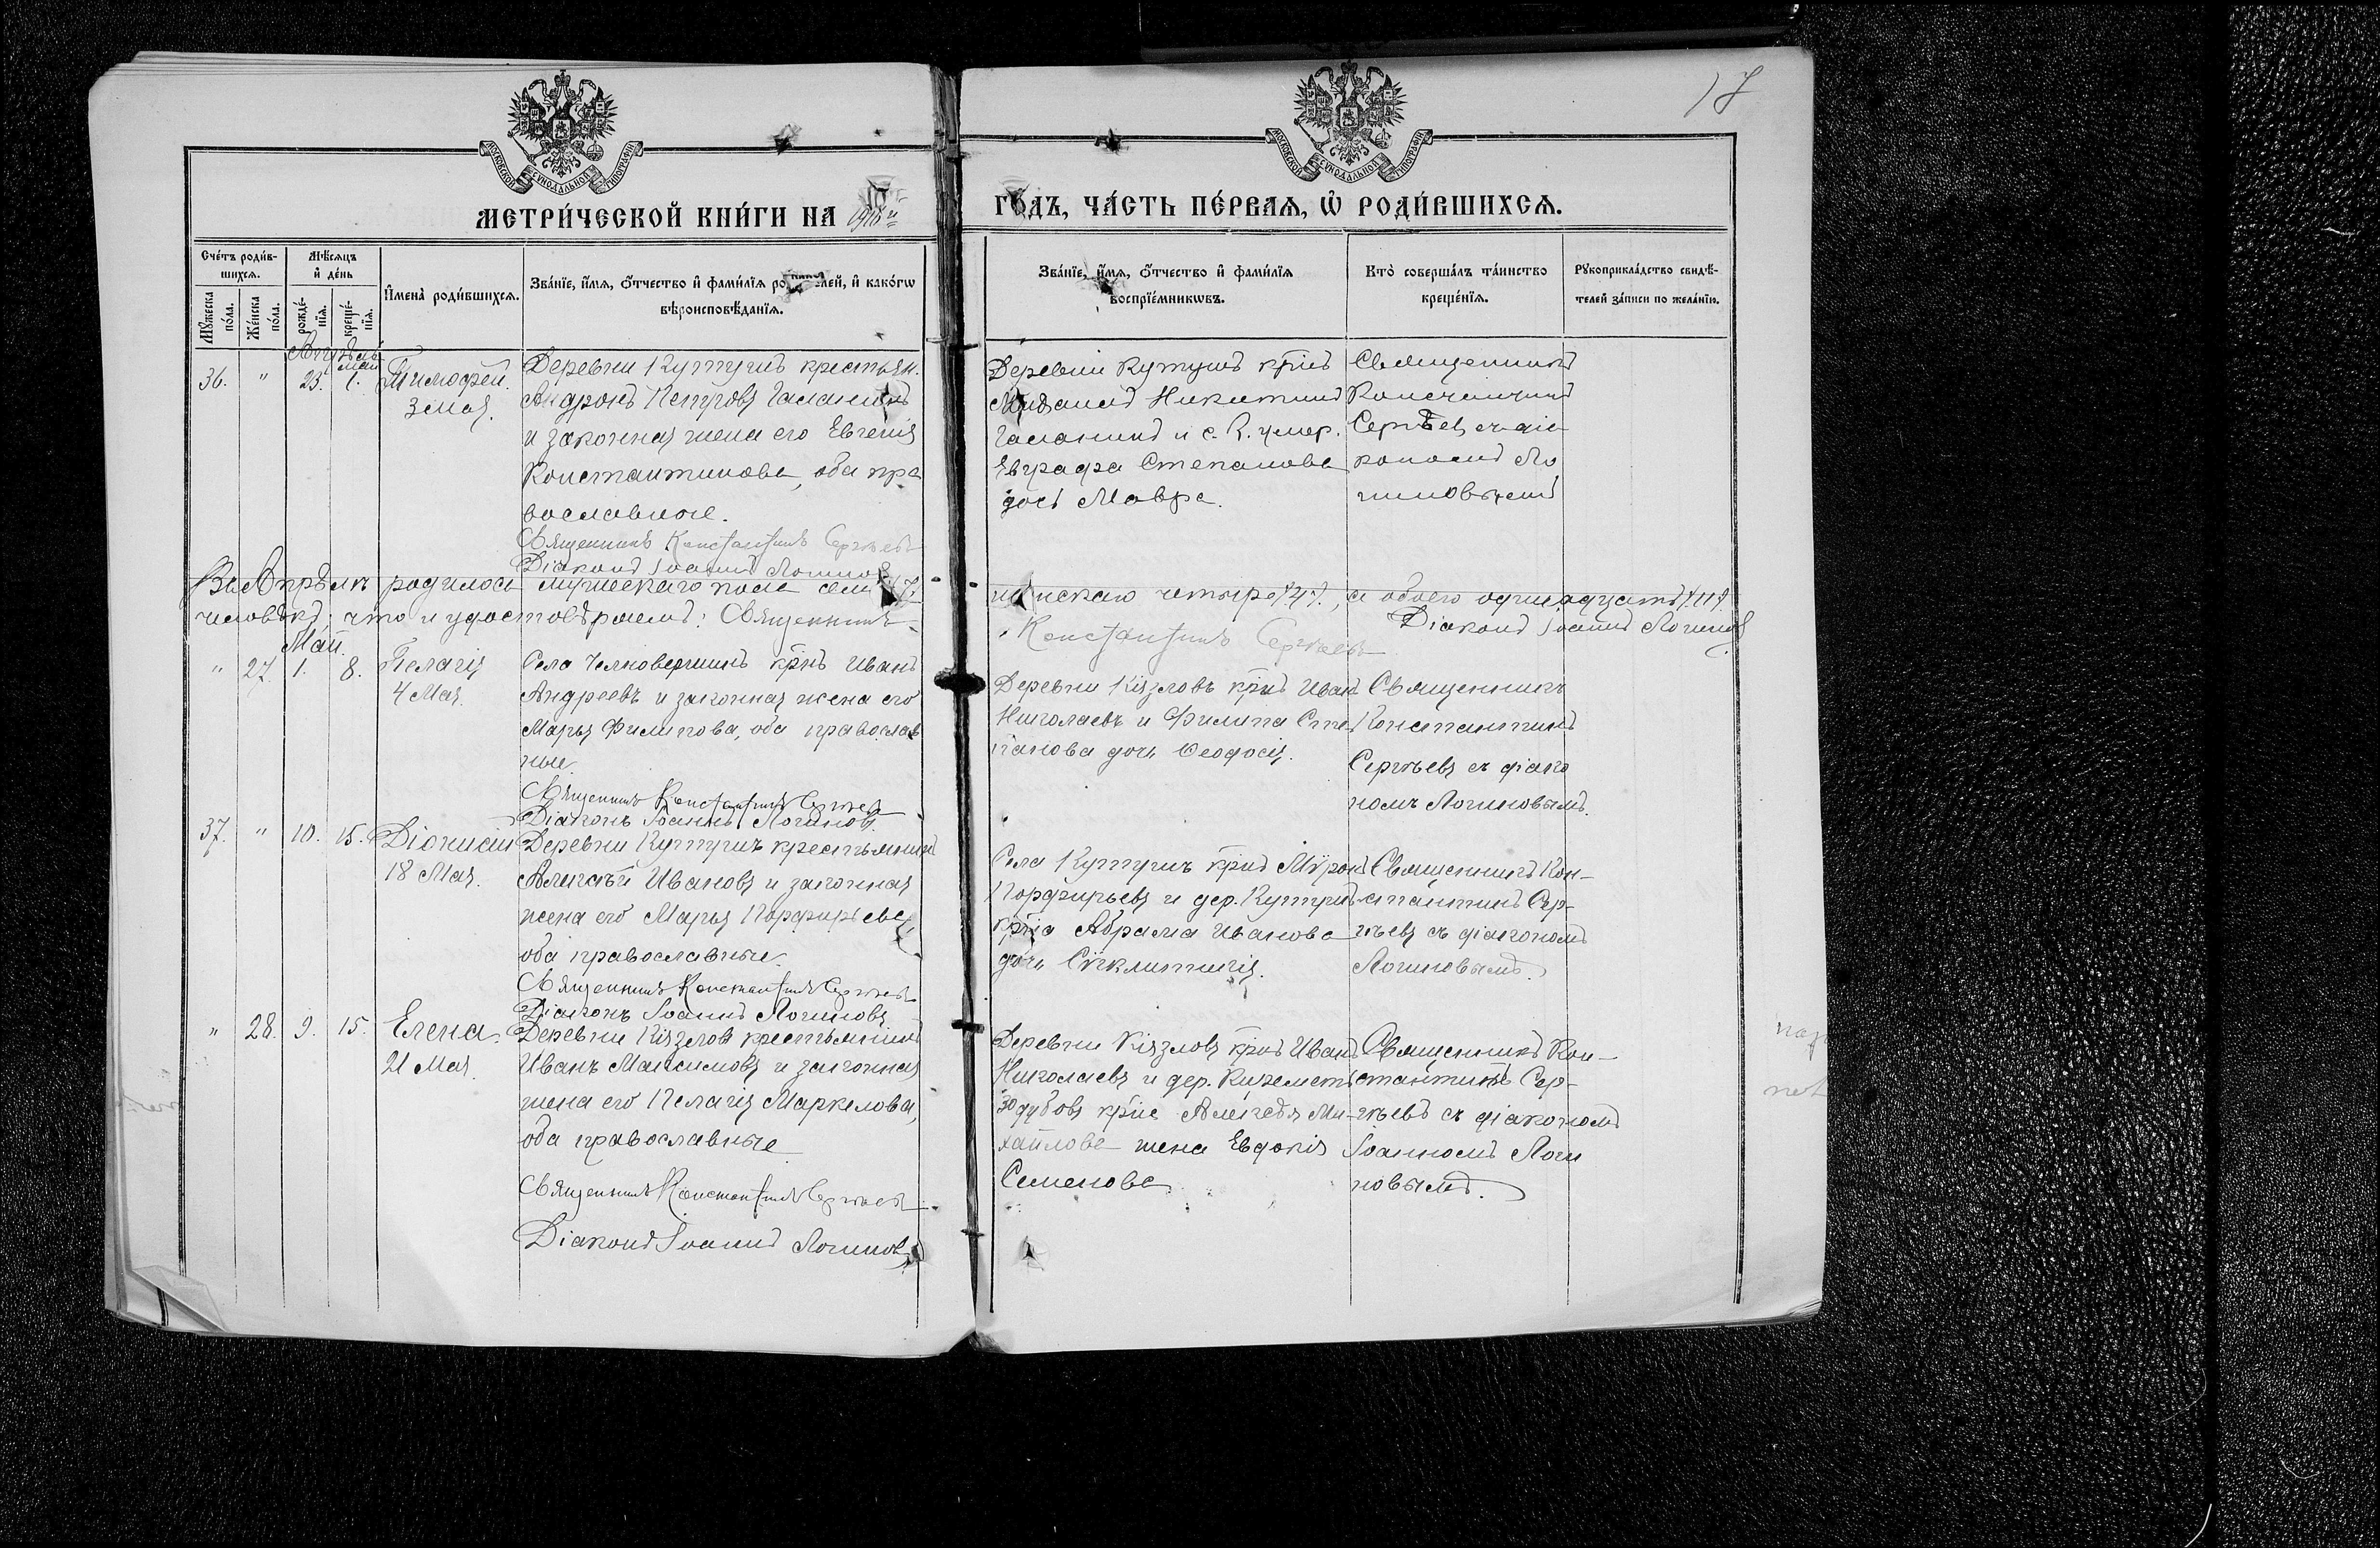 17
МЕТРИ́ЧЕСКОЙ КНИ́ГИ НА
ГО́ДЪ, ЧА́СТЬ ПЕ́РВАЯ, Ѡ РОДИ́ВШИХСЯ.
МОСКОВСКОЙ СѴНОДАЛЬНОЙ ТИПОГРАФІИ
МОСКОВСКОЙ СѴНОДАЛЬНОЙ ТИПОГРАФІИ
Сче́тъ роди́в-
шихся.
Мѣ́сяцъ
и де́нь
Мꙋ́жеска
по́ла.
Же́нска
по́ла.
рожде́-
нїя.
креще́-
нїя.
Имена̀ роди́вшихся.
Зва́нїе, и́мя, ѻ́тчество и фами́лїя родителей, и како́гѡ
вѣроисповѣ́данїя.
Зва́нїе, и́мя, ѻ́тчество и фами́лїя
воспрїе́мникѡвъ.
Кто̀ соверша́лъ та́инство
креще́нїя.
Рꙋкоприкла́дство свидѣ́-
телей за́писи по жела́нїю.
Апрѣль
Май
36. " 23. 1. Тимофей.
3 Мая.
Деревни Кутушъ крестьян.
Андронъ Петровъ Галанинъ
и законная жена его Евгенія
Константинова, оба пра
вославные.
Священникъ Константинъ Сергѣевъ
Діаконъ Іоаннъ Логиновъ
Деревни Кутушъ кр̃нъ
Никитинъ
Галанинъ и с. К. умер.
Евграфа Степанова
дочь Мавра.
Священникъ
Константинъ
Сергѣевъ съ діа
кономъ Ло
гиновымъ
Въ Апрѣлѣ родилось мужескаго пола семь /7/
женскаго четыре /4/, а обоего одиннадцать /11/
человѣкъ; что и удостовѣряемъ: Священникъ
Константинъ Сергѣевъ
Діаконъ Іоаннъ Логиновъ
Май.
" 27. 1. 8. Пелагія
4 Мая.
Села Челновершинъ кр̃нъ Иванъ
Андреевъ и законная жена его
Марья Филипова, оба православ
ные.
Священникъ Константинъ Сергѣевъ
Діаконъ Іоаннъ Логиновъ.
Деревни Кіязловъ кр̃нъ Иванъ
Николаевъ и Филипа Сте
панова дочь Ѳеодосія.
Священникъ
Константинъ
Сергѣевъ съ діако
номъ Логиновымъ.
37. " 10. 15. Діонисій
18 Мая.
Деревни Кутушъ крестьянинъ
Алексѣй Ивановъ и законная
жена его Марья Порфирьева,
оба православные.
Священникъ Константинъ Сергѣевъ
Діаконъ Іоаннъ Логиновъ
Села Кутушъ кр̃нъ Мѵронъ
Порфирьевъ и дер. Кутушъ
кр̃на Абрама Иванова
дочь Сѵнклитикія.
Священникъ Кон-
стантинъ Сер-
гѣевъ съ діакономъ
Логиновымъ.
" 28. 9. 15. Елена.
21 Мая.
Деревни Кіязловъ крестьянинъ
Иванъ Максимовъ и законная
жена его Пелагія Маркелова,
оба православные
Священникъ Константинъ Сергѣевъ
Діаконъ Іоаннъ Логиновъ
Деревни Кіязловъ кр̃нъ Иванъ
Николаевъ и дер.
кр̃на Ми-
хайлова жена Евдокія
Семенова
Священникъ Кон-
стантинъ Сер-
гѣевъ съ діакономъ
Іоанномъ Логи
новымъ.